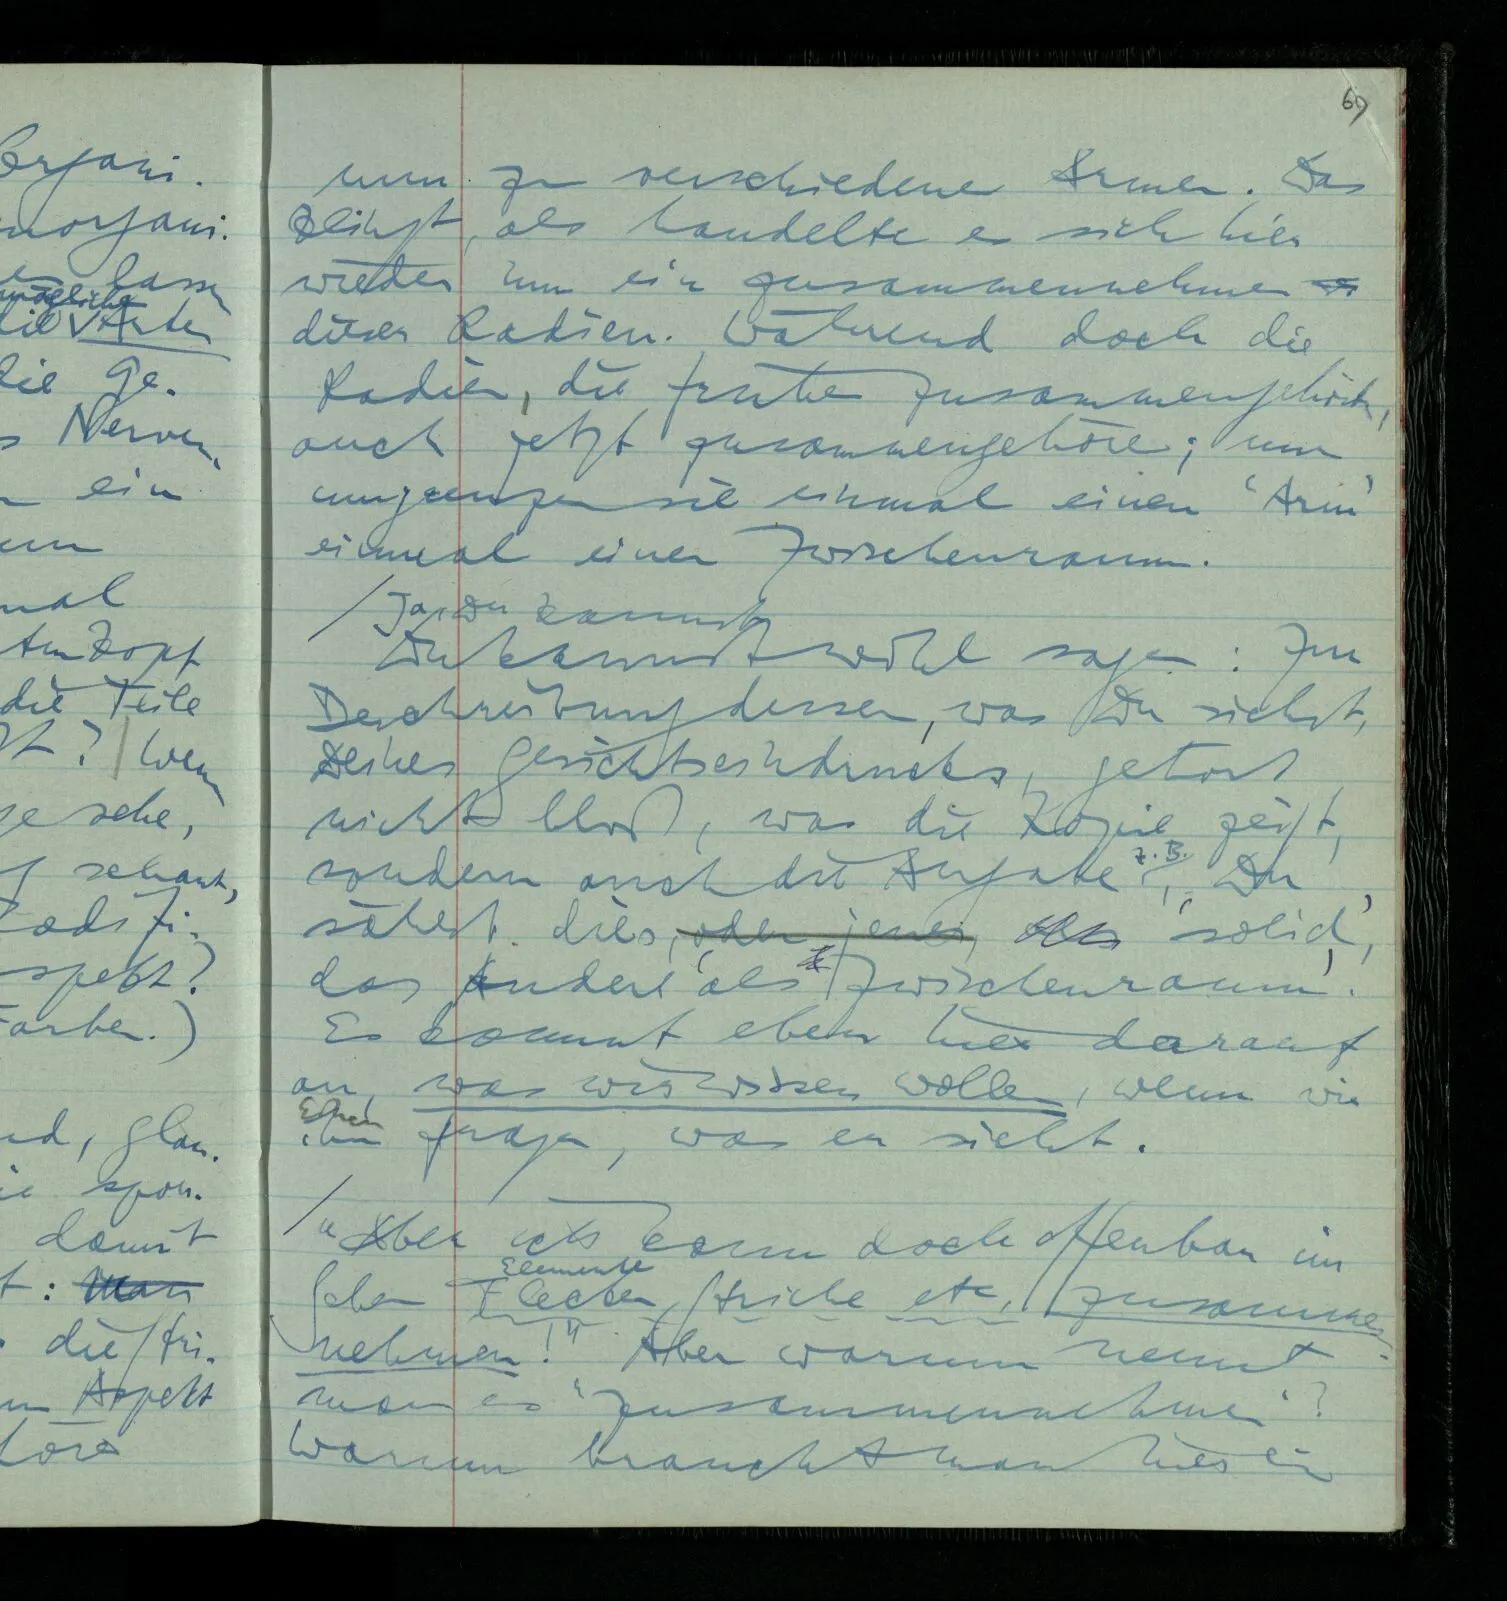 Organi-
norgani-
es lassen
mögliche
die Arten
die Ge-
Nerven,
ein
mal
Am Kopf
die Teile
? Wenn
sehe,
schaut,
spekt?
Farben.)
nd, glau-
spon-
damit
: Man
die Stri-
Aspekt
höre
69
nun zu verschiedene Armen. Das
klingt, als handelte es sich hier
wieder um ein zusammennehmen
dieser Radien. Während doch die
Radien, die früher zusammengehörten,
auch jetzt zusammengehören; nur
umgrenzen sie einmal einen 'Arm'
einmal einen Zwischenraum.
/ Ja, Du kannst
Du kannst wohl sagen: Zur
Beschreibung dessen, was Du siehst,
Deines Gesichtseindrucks, gehört
nicht bloß, was die Kopie zeigt,
z.B.
sondern auch die Angabe, Du
sähest dies, oder jenes, als 'solid',
das Andere als 'Zwischenraum'.
Es kommt eben hier darauf
an, was wir wissen wollen, wenn wir
Einen
ihn fragen, was er sieht.
/ "Aber ich kann doch offenbar im
Elemente
Sehen Flecken, Striche etc. zusammen-
nehmen!" Aber warum nennt
man es "zusammennehmen"?
Warum braucht man hier ein